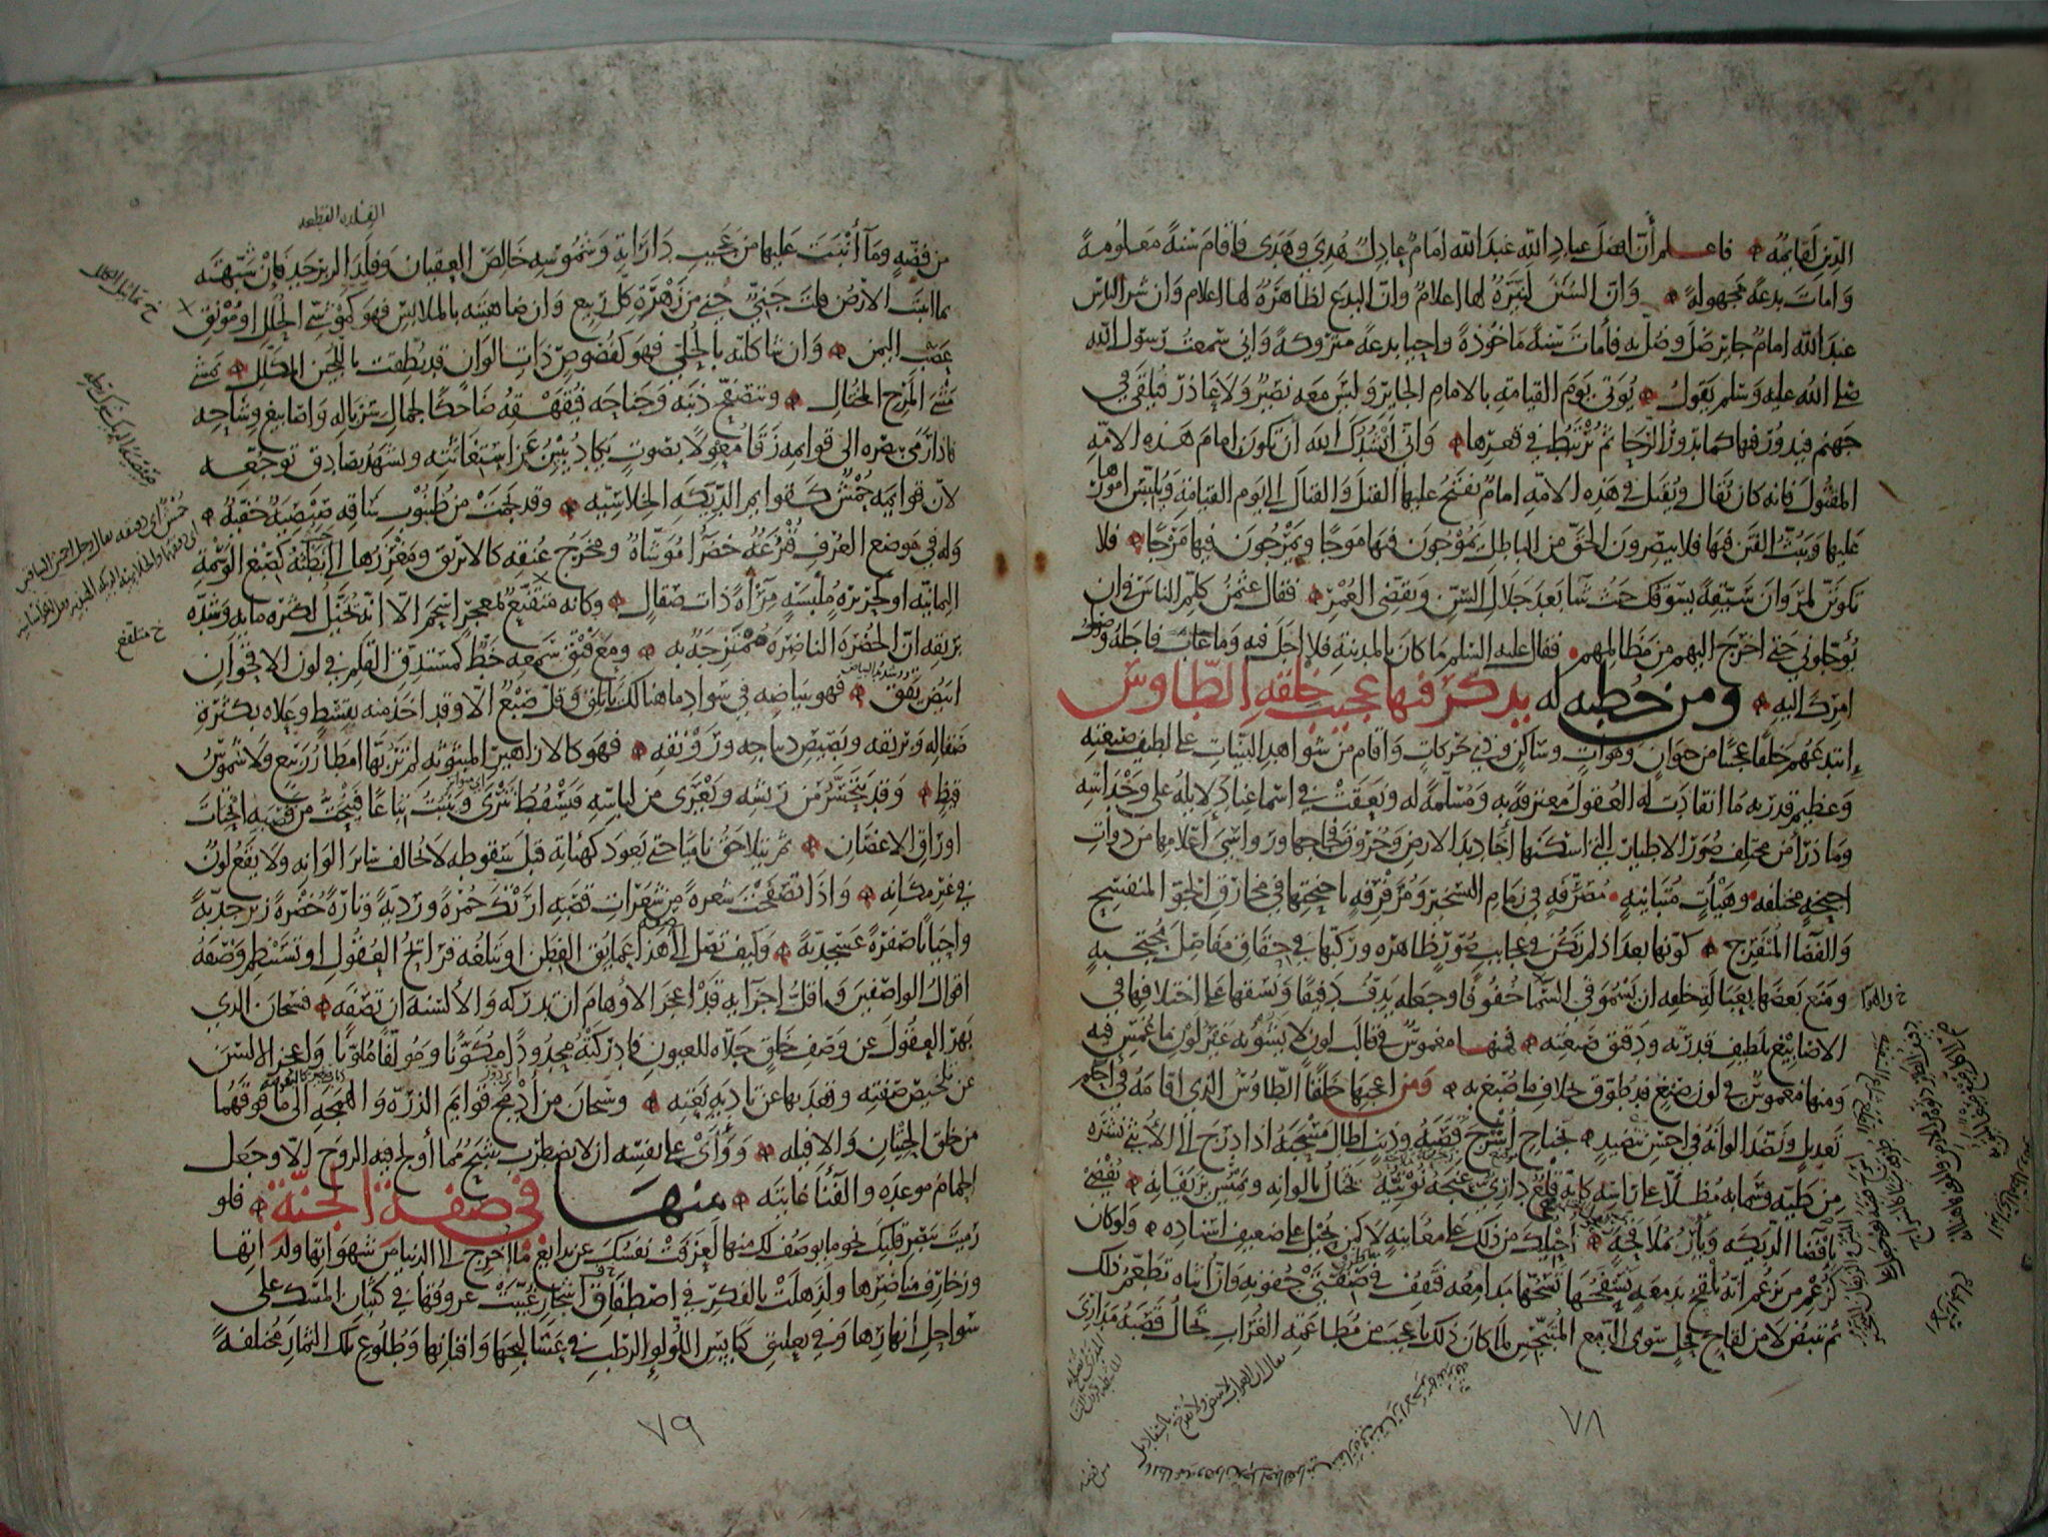 الدين لقايمه فاعلم أن افضل عباد الله عند الله امام عادل هدي وهدى فاقام سنة معلومة
وامات بدعة مجهولة وان السنن لنيرة لها اعلام وان البدع لظاهرة لها اعلام وان شر الناس
عند الله امام جاير ضل وضل به فأمات سنة ماخوذة واحيا بدعة متروكة واني سمعت رسول الله
صلى الله عليه وسلم يقول يوتى يوم القيامة بالامام الجاير وليس معه نصير ولا عاذر فيلقى في
جهنم فيدور فيها كما تدور الرحا ثم يرتبط في قعرها واني انشدك الله أن تكون امام هذه الامة
المقتول فانه كان يقال يقتل في هذه الامة امام يفتح عليها القتل والقتال الى يوم القيامة ويلبس امورها
عليها ويبث الفتن فيها فلا يبصرون الحق من الباطل يموجون فيها موجا ويمرجون فيها مرجا فلا
تكونن لمروان سيقة يسوقك حيث شا بعد جلال السن وتقضي العمر فقال عثمن كلم الناس في ان
يوجلوني حتى اخرج اليهم من مظالمهم فقال عليه السلم ما كان بالمدينة فلا اجل فيه وما غاب فاجله وصول
امرك اليه ومن خطبه له يذكر فيها عجيب خلقه الطاوس
ابتدعهم خلقا عجيبا من حيوان وموات وساكن وذي حركات واقام من شواهد البينات على لطيف صنعته
وعظيم قدرته ما انقادت له العقول معترفة به ومسلمة له ونعقت في اسماعنا دلايله على وحدانيته
وما ذرأ من مختلف صور الاطيار التي اسكنها اخاديد الارض وخروق فجاجها ورواسي اعلامها من ذوات
اجنحة مختلفة وهيأت متباينة مصرفة في زمام التسخير ومرفرفة باجنحتها في مخارق الجو المنفسح
والفضا المنفرج كونها بعد اذ لم تكن في عجايب صور ظاهرة وركبها في حقاق مفاصل محتجبة
ومنع بعضها بعبالة خلقه ان يسمو في السما خفوفا وجعله يدف دفيفا ونسقها على اختلافها في
الاصابيغ بلطيف قدرته ودقيق صنعته فمنها مغموس في قالب لون لا يشوبه غير لون ما غمس فيه
ومنها مغموس في لون صبغ قد طوق بخلاف ما صبغ به ومن اعجبها خلقا الطاوس الذي اقامه في احكم
تعديل ونضد الوانه في احسن تنضيد بجناح اشرج قصبه وذنب اطال مسحبه اذا درج الى الانثى نشره
من طيه وسما به مطلا على راسه كانه قلع داري عنجه نوتيه يختال بالوانه ويميس بزيفانه يفضي
كافضا الديكة ويأر بملاقحة احيلك من ذلك على معاينة لا كمن يحيل على ضعيف اسناده ولو كان
كزعم من يزعم انه يلقح بدمعة تسفحها مدامعه فتقف في ضفتي جفونه وان انثاه تطعم ذلك
ثم تبيض لا من لقاح فحل سوى الدمع المنبجس لما كان ذلك باعجب من مطاعمة الغراب تخال قصبه مداري
٧٨
الفلذه القطعه
من فضة وما أنبت عليها من عجيب داراته وشموسه خالص العقيان وفلذ الزبرجد فان شبهته
بما انبتت الارض قلت جني جني من زهرة كل ربيع وان ضاهيته بالملابس فهو كموشي الحلل او مونق
عصب اليمن وان شاكلته بالحلي فهو كفصوص ذات الوان قد نطقت باللجين المكلل يمشي
مشي المرح المختال ويتصفح ذنبه وجناحه فيقهقه ضاحكا لجمال سرباله واصابيغ وشاحه
فاذا رمى ببصره الى قوايمه زقا معولا بصوت يكاد يبين عن استغاثته ويشهد بصادق توجعه
لان قوايمه حمش كقوايم الديكة الخلاسية وقد نجمت من ظنبوب ساقه صيصية خفية
وله في موضع العرف قنزعة خضرا موشاة ومخرج عنقه كالابريق ومغرزها الى حيث بطنه كصبغ الوسمة
اليمانية او كحريرة ملبسة مرأة ذات صقال وكانه متقنع بمعجر اسحم الا انه يخيل لكثرة مايه وشدة
بريقه ان الخضرة الناضرة ممتزجة به ومع فتق سمعه خط كمستدق القلم في لون الاقحوان
ابيض يقق فهو ببياضه في سواد ما هنالك يأتلق وقل صبغ الا وقد اخذ منه بقسط وعلاه بكثرة
صقاله وبريقه وبصيص ديباجه ورونقه فهو كالازاهير المبثوثة لم تربها امطار ربيع ولا شموس
قيظ وقد يتحسر من ريشه ويعرى من لباسه فيسقط تترى وينبت تباعا فينحت من قصبه انحتات
اوراق الاغصان ثم يتلاحق ناميا حتى يعود كهيأته قبل سقوطه لا يخالف سائر الوانه ولا يقع لون
في غير مكانه واذا تصفحت شعرة من شعرات قصبه ارتك حمرة وردية وتارة خضرة زبرجدية
واحيانا صفرة عسجدية وكيف تصل الى صفة هذا عمايق الفطن او تبلغه قرائح العقول او تستنظم وصفه
اقوال الواصفين واقل اجزايه قد اعجز الاوهام ان تدركه والالسنة ان تصفه فسبحان الذي
بهر العقول عن وصف خلق جلاه للعيون فادركته محدودا مكونا ومولفا ملونا واعجز الالسن
عن تلخيص صفته وقعد بها عن تادية نعته وسبحان من أدمج قوايم الذرة والهمجة الى ما فوقهما
من خلق الحيتان والافيلة ووأى على نفسه ان لا يضطرب شبح مما أولج فيه الروح الا وجعل
الحمام موعده والفناء غايته منها في صفة الجنة فلو
رميت ببصر قلبك نحو ما يوصف لك منها لعزفت نفسك عن بدايع ما اخرج الى الدنيا من شهواتها ولذاتها
وزخارف مناظرها ولذهلت بالفكر في اصطفاق اشجار غيبت عروقها في كثبان المسك على
سواحل انهارها وفي تعليق كبايس اللولو الرطب في عساليجها وافنانها وطلوع تلك الثمار مختلفة
خ متلفع
٧٩